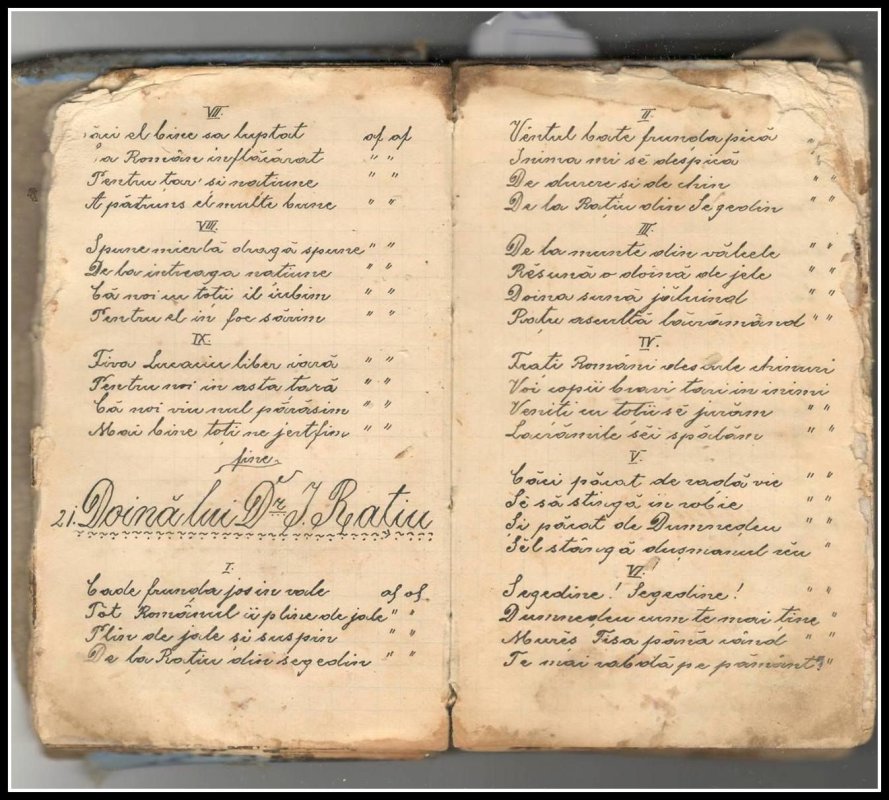 VII.
căci el bine sa luptat of of
Ca Român inflăcărat " "
Pentru tar' si natiune " "
A pătruns el multe bune " "
VIII.
Spune mierlă dragă spune " "
De la intreaga natiune " "
Că noi cu totii il iubim " "
Pentru el in foc sărim " "
IX.
Tiva Lucaciu liber iară " "
Pentru noi in asta tară " "
Că noi viu nul părăsim " "
Mai bine toti ne jertfim " "
fine.
21. Doină lui Dr. I. Rațiu
I.
Cade frunda jos in vale of of
Tót Românul ii pline de jale " "
Plin de jale si suspin " "
De la Rațiu din segedin " "
II.
Vêntul bate frunda pică "
Inima mi se despică "
De durere si de chin " "
De la Rațiu din Segedin " "
III.
De la munte din vălcele " "
Rĕsună o doină de jele " "
Doina sună jăluind " "
Rațiu ascultă lăcrămând " "
IV.
Frati Români des cele chinuri
Voi copii bravi tari in inimi
Veniti cu toții sĕ jurăm " "
Lacrămile sĕi spălăm " "
V.
Căci păcat de radă vie " "
Sĕ să stingă in robie " "
Si păcat de Dumnedeu " "
Sĕl stângă dușmanul rĕu "
VI.
Segedine! Segedine!
Dumnedeu cum te mai tine "
Murĕs Tisa până când " "
Te mai rabdă pe pământ? "